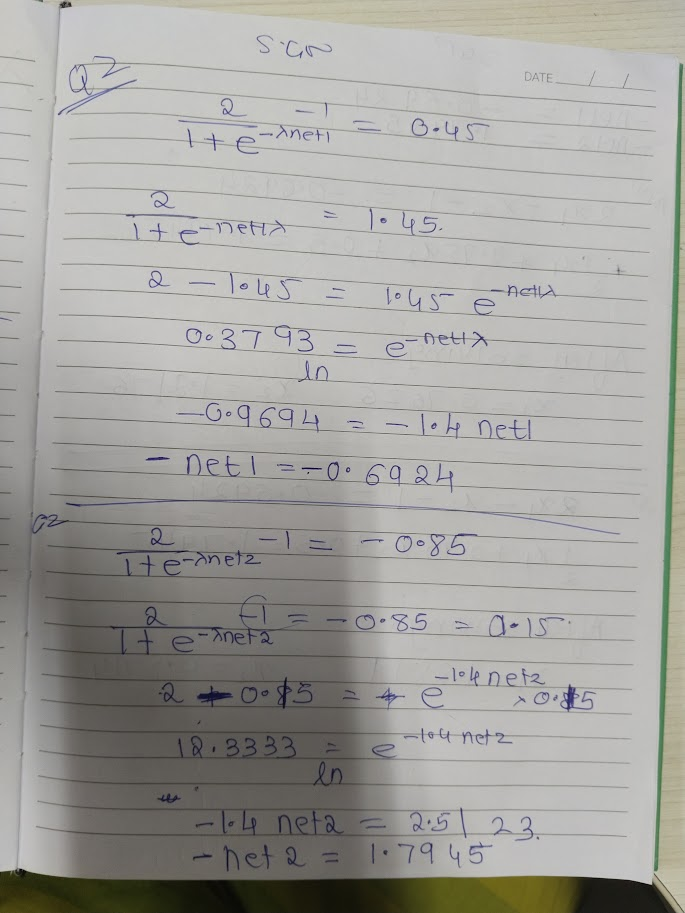 DATE / /
Q2
2 / (1 + e^-λnet1) - 1 = 0.45
2 / (1 + e^-net1λ) = 1.45.
2 - 1.45 = 1.45 e^-net1λ
0.3793 = e^-net1λ
ln
-0.9694 = -1.4 net1
- net1 = -0.6924
O2
2 / (1 + e^-λnet2) - 1 = -0.85
2 / (1 + e^-λnet2) - 1 = -0.85 = 0.15.
2 - 0.15 = e^-1.4 net2 × 0.15
12.3333 = e^-1.4 net2
ln
-1.4 net2 = 2.5123.
- net2 = 1.7945